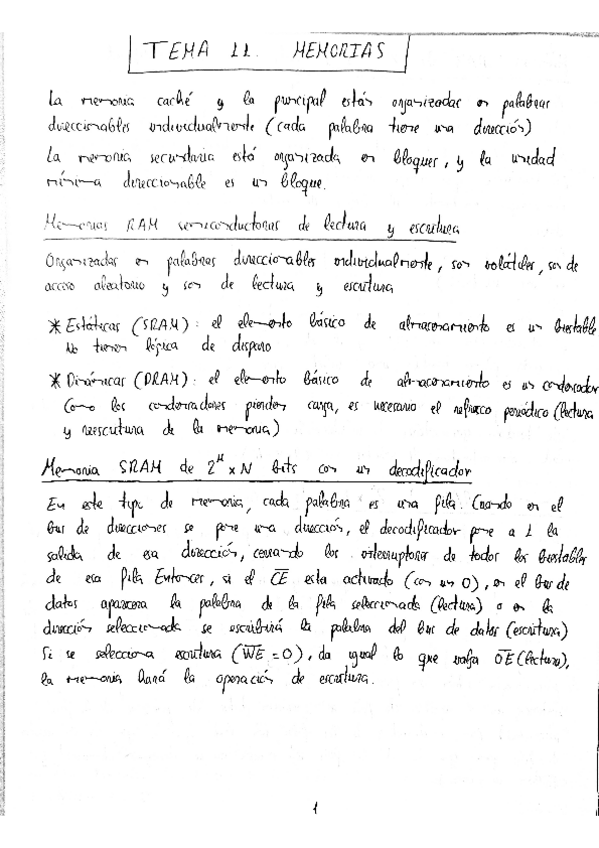 TEMA 11. MEMORIAS
La memoria caché y la principal están organizadas en palabras
direccionables individualmente (cada palabra tiene una dirección)
La memoria secundaria está organizada en bloques, y la unidad
mínima direccionable es un bloque.
Memorias RAM semiconductoras de lectura y escritura
Organizadas en palabras direccionables individualmente, son volátiles, son de
acceso aleatorio y son de lectura y escritura
* Estáticas (SRAM): el elemento básico de almacenamiento es un biestable
No tienen lógica de disparo
* Dinámicas (DRAM): el elemento básico de almacenamiento es un condensador
Como los condensadores pierden carga, es necesario el refresco periódico (lectura
y reescritura de la memoria)
Memoria SRAM de 2^M x N bits con un decodificador
En este tipo de memoria, cada palabra es una fila. Cuando en el
bus de direcciones se pone una dirección, el decodificador pone a 1 la
salida de esa dirección, cerrando los interruptores de todos los biestables
de esa fila. Entonces, si el C̅E̅ esta activado (con un 0), en el bus de
datos aparecera la palabra de la fila seleccionada (lectura) o en la
dirección seleccionada se escribirá la palabra del bus de datos (escritura)
Si se selecciona escritura (W̅E̅=0), da igual lo que valga O̅E̅ (lectura),
la memoria hará la operación de escritura.
1